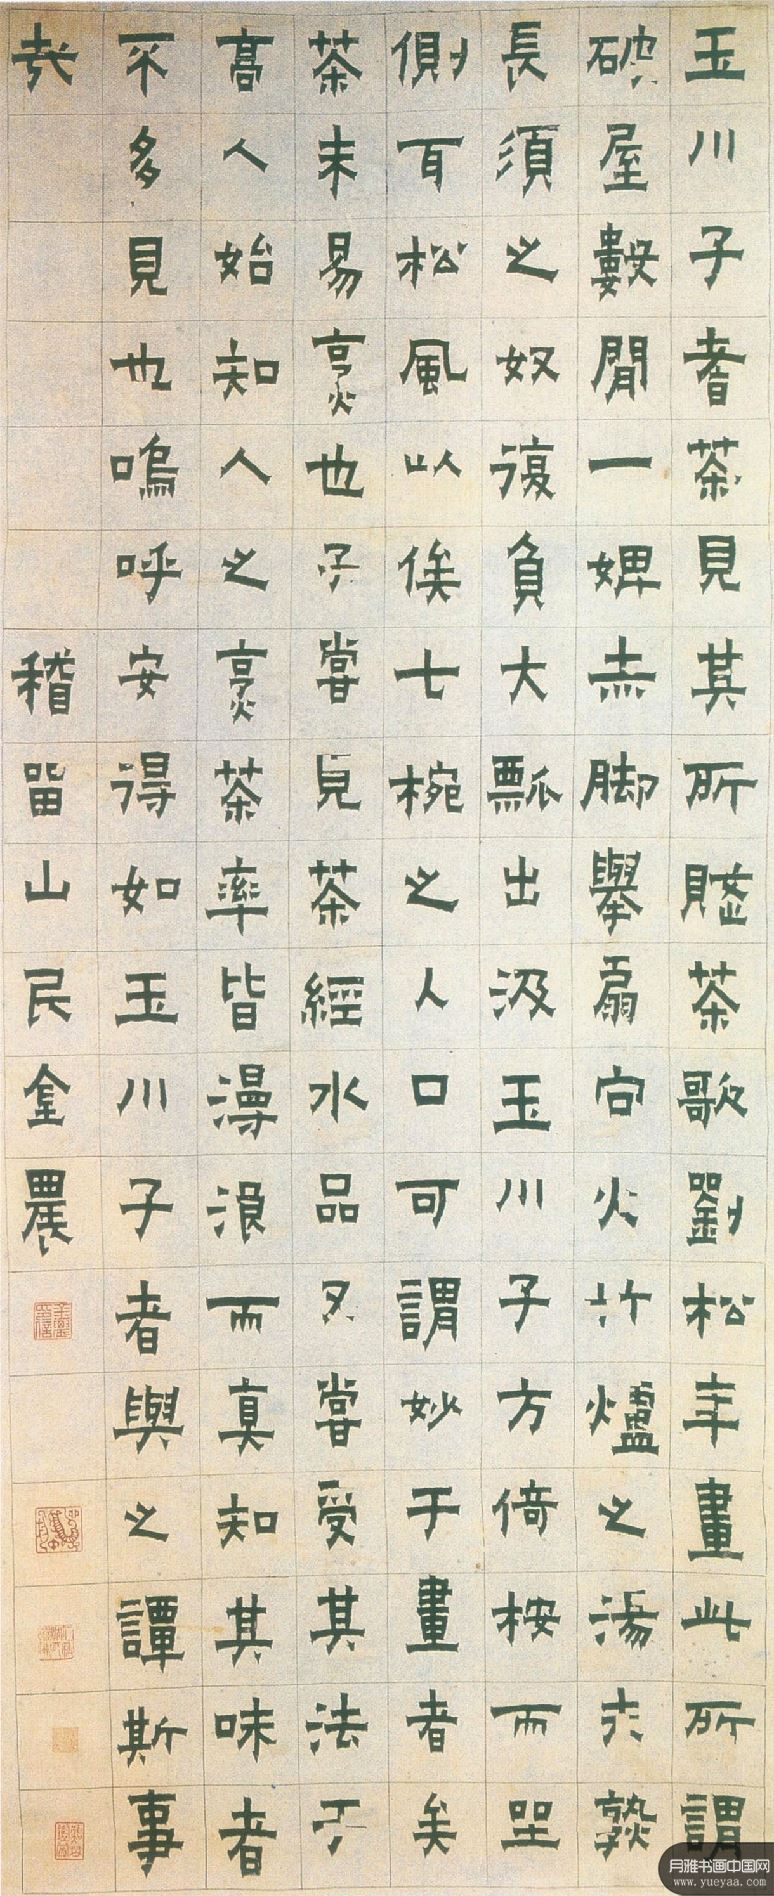 玉川子耆茶見其所賦茶歌劉松年畫此所謂
破屋數閒一婢赤脚舉扇向火竹爐之湯未熟
長須之奴復負大瓢出汲玉川子方倚桉而坐
側耳松風以俟七椀之入口可謂妙于畫者矣
茶未易烹也予嘗見茶經水品又嘗受其法于
高人始知人之烹茶率皆漫浪而真知其味者
不多見也嗚呼安得如玉川子者與之譚斯事
哉 稽留山民金農
月雅书画中国网
www.yueyaa.com